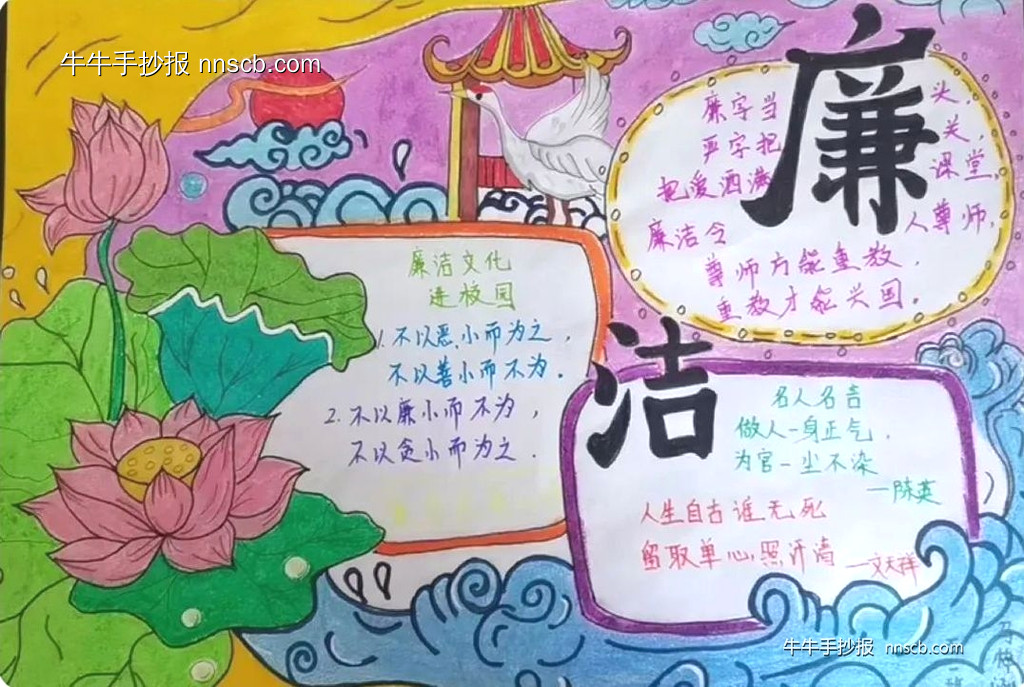 牛牛手抄报 nnscb.com
廉
廉字当头，
严字把关，
把爱洒满课堂，
廉洁令人尊师，
尊师方能重教，
重教才能兴国。
廉洁文化
进校园
1. 不以恶小而为之，
不以善小而不为。
2. 不以廉小而不为，
不以贪小而为之．
洁
名人名言
做人一身正气，
为官一尘不染
—陈英
人生自古谁无死
留取单心照汗清
—文天祥
牛牛手抄报 nnscb.com